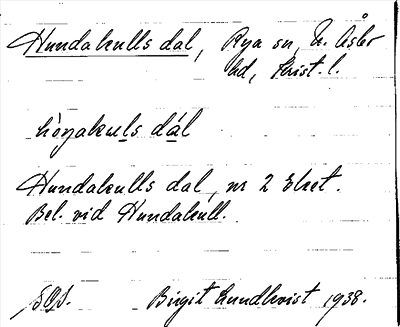 Hundakulls dal, Rya sn, N. Åsbo
hd, Krist. l.
hòṉakuls dál
Hundakulls dal, nr 2 Eket.
Bel. vid Hundakull.
Birgit Lundkvist 1938.